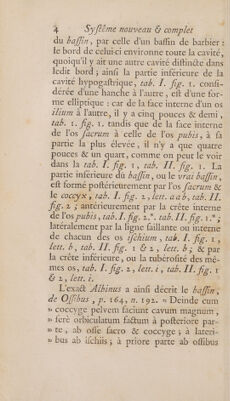 4 Systême nouveau & complet
du bassin, par celle d'un bassin de barbier :
le bord de celui-ci environne toute la cavité,
quoiqu'il y ait une autre cavité distincte dans
ledit bord ; ainsi la partie inférieure de la
cavité hypogastrique, tab. I. fig. 1. consi-
dérée d'une hanche à l'autre, est d'une for-
me elliptique : car de la face interne d'un os
ilium à l'autre, il y a cinq pouces & demi,
tab. 1. fig. 1. tandis que de la face interne
de l'os sacrum à celle de l'os pubis, à sa
partie la plus élevée, il n'y a que quatre
pouces & un quart, comme on peut le voir
dans la tab. I. fig. 1. tab. II. fig. 1. La
partie inférieure du bassin, ou le vrai bassin,
est formé postérieurement par l'os sacrum &
le coccyx, tab. I. fig. 2, lett. a ab, tab. II.
fig. 2 ; antérieurement par la crête interne
de l'os pubis, tab. I. fig. 2.*. tab. II. fig. 1.* ;
latéralement par la ligne saillante ou interne
de chacun des os ischium, tab. I. fig. 1,
lett. b, tab. II. fig. 1 & 2, lett. b ; & par
la crête inférieure, ou la tubérosité des mê-
mes os, tab. I. fig. 2, lett. i, tab. II. fig. 1
& 2, lett. i.
L'exact Albinus a ainsi décrit le bassin,
de Ossibus, p. 164, n. 192. » Deinde cum
» coccyge pelvem faciunt cavum magnum,
» ferè orbiculatum factum à posteriore par-
» te, ab osse sacro & coccyge ; à lateri-
» bus ab ischiis ; à priore parte ab ossibus